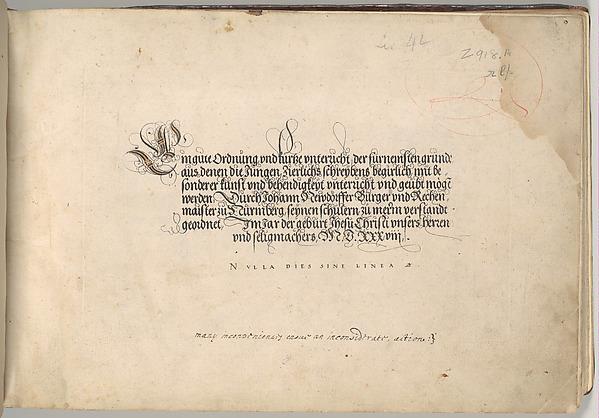 Z 918. A
Ein gute Ordnung, vnd kurtze vnterricht, der fürnemsten grunde
aus denen die Jungen, Zierlichs schreybens begirlich, mit be
sonderer kunst vnd behendigkeyt vnterricht vnd geubt mögē
werden Durch Johann Newdörffer Burger vnd Rechen
maister zu Nürmberg, seynen schulern zu merm verstandt
geordnet. Im Jar der geburt Jhesu Christi vnsers herren
vnd seligmachers, M. D. XXXviij.
NVLLA DIES SINE LINEA
many inconveniencis ensue an inconsiderate action